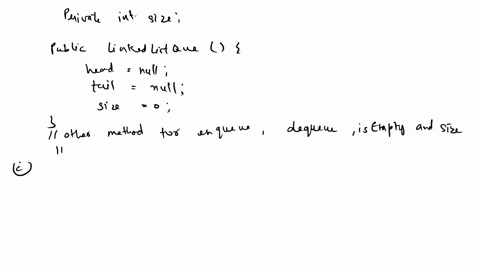 Perivate int size;
Public LinkedListQue () {
head = null;
tail = null;
size = 0;
}
// other method for enqueue, dequeue, isEmpty and size
//
(c)